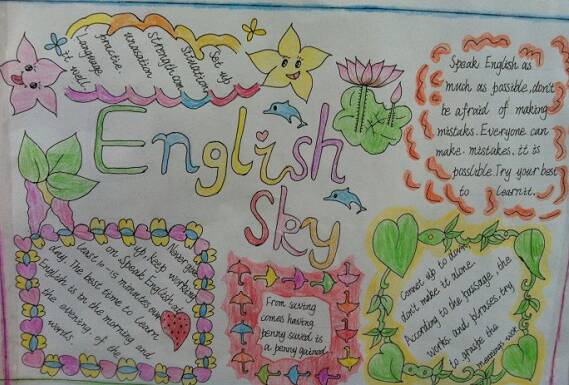 Set up
Situation
strength.com
unasation
practive
Language
it well
English
Sky
Speak English as
much as possible,don't
be afraid of making
mistakes. Everyone can
make. mistakes. it is
possible.Try your best
to learnit.
Never give
up, keep working
on Speak English at
least 10-15 minutes
day. The best time to learn
English is in the morning and
the evening of the
words.
From saving
comes having
penny saved is
a penny gained
Connet up to down,
don't make it alone.
According to the passage, the
works and phrases, try
to graspe the
meanings